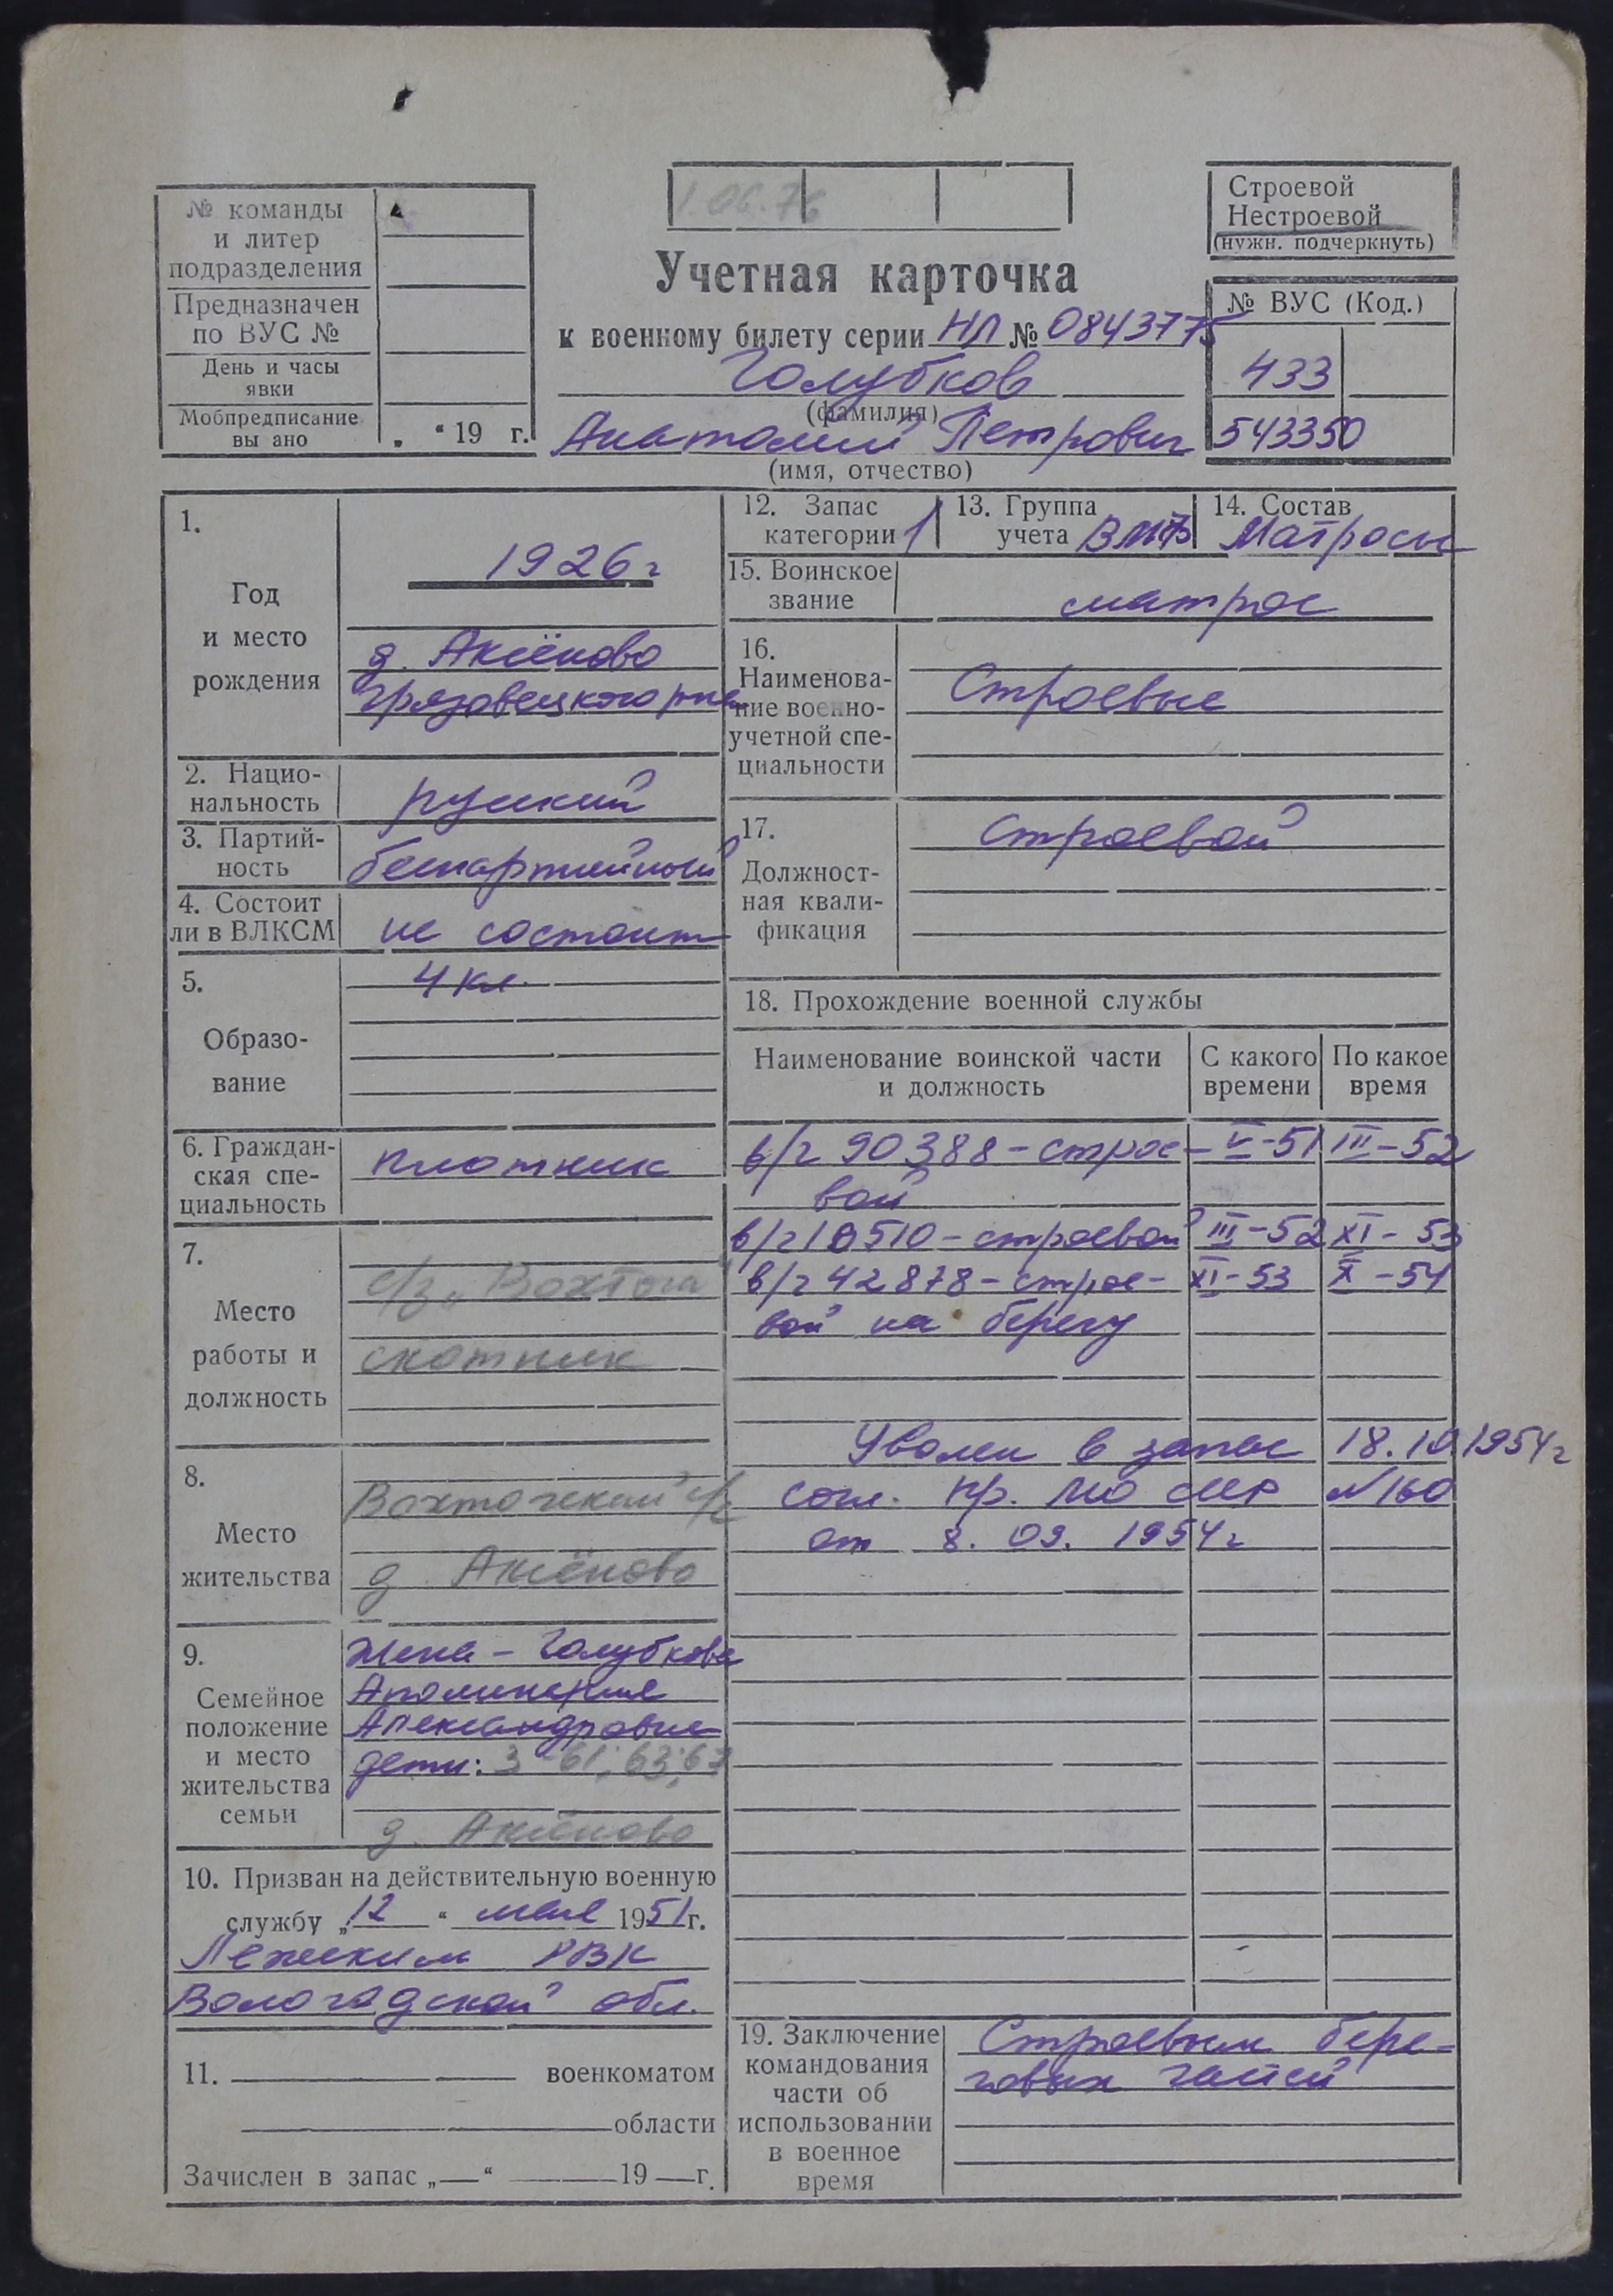 1.06.76
Строевой
Нестроевой
(нужн. подчеркнуть)
№ команды
и литер
подразделения
Предназначен
по ВУС №
День и часы
явки
Мобпредписание
вы ано
„ “ 19 г.
Учетная карточка
к военному билету серии НЛ № 0843775
Голубков
(фамилия)
Анатолий Петрович
(имя, отчество)
№ ВУС (Код.)
433
543350
1.
Год
и место
рождения
1926 г
д. Аксёново
Грязовецкого р-на
2. Нацио-
нальность
русский
3. Партий-
ность
беспартийный
4. Состоит
ли в ВЛКСМ
не состоит
5.
Образо-
вание
4 кл.
6. Граждан-
ская спе-
циальность
плотник
7.
Место
работы и
должность
с/з „Вохтога“
скотник
8.
Место
жительства
Вохтожский с/с
д. Аксёново
9.
Семейное
положение
и место
жительства
семьи
Жена - Голубкова
Аполинария
Александровна
дети: 3 - 61; 63; 67
д. Аксёново
10. Призван на действительную военную
службу „12“ мая 1951 г.
Лежским РВК
Вологодской обл.
11. военкоматом
области
Зачислен в запас „ “ 19 г.
12. Запас
категории 1
13. Группа
учета ВМФ
14. Состав
Матросы
15. Воинское
звание
матрос
16.
Наименова-
ние военно-
учетной спе-
циальности
Строевые
17.
Должност-
ная квали-
фикация
Строевой
18. Прохождение военной службы
Наименование воинской части
и должность
С какого
времени
По какое
время
в/ч 90388 - строе- V-51 III-52
вой
в/ч 10510 - строевой III-52 XI-53
в/ч 42878 - строе- XI-53 X-54
вой на берегу
Уволен в запас 18.10.1954 г
согл. Пр. МО СССР №160
от 8.09.1954 г
19. Заключение
командования
части об
использовании
в военное
время
Строевым бере-
говых частей